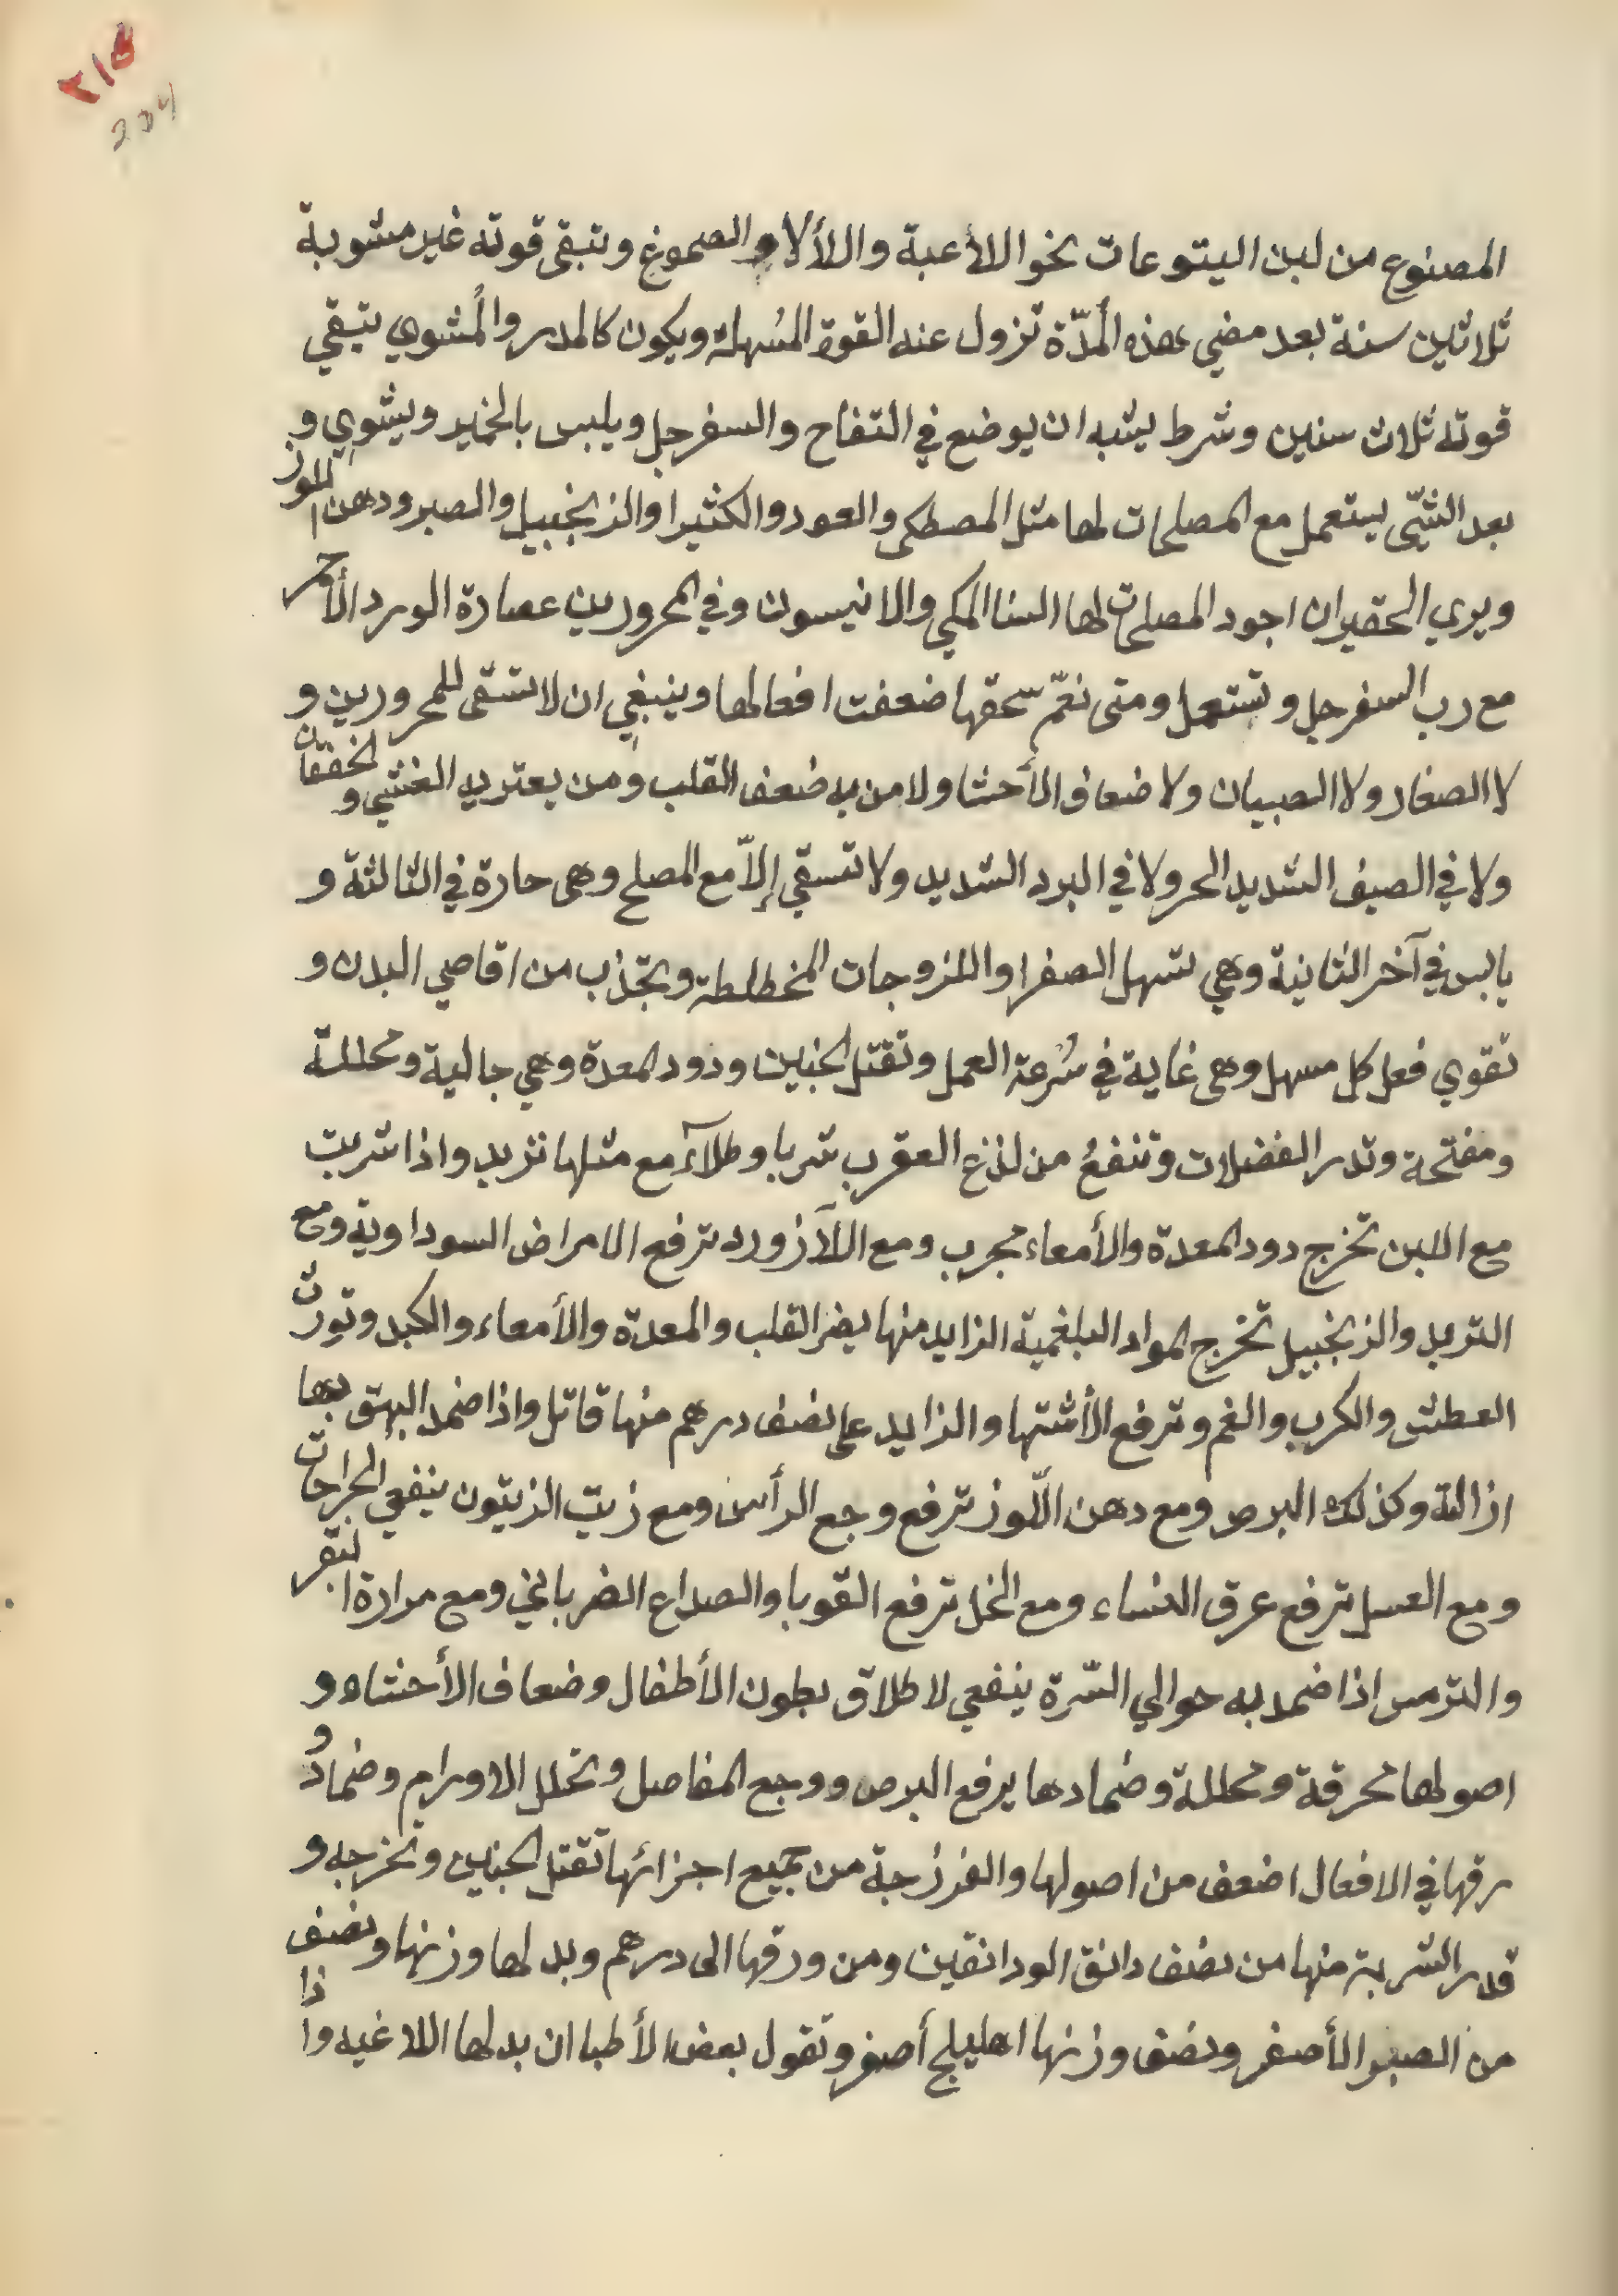 ٢١٥
204
المصنوع من لبن اليتوعات نحو اللأعبة واللألا والصموغ وتبقى قوته غير مشوبة
ثلاثين سنة بعد مضي هذه المدّة تزول عنه القوة المُسهلة ويكون كالمدر والمشوي يتبقي
قوته ثلاث سنين وشرط يشبه ان يوضع في التفاح والسفرجل ويلبس بالخمير ويشوي و
بعد الشّي يستعمل مع المصلحات لها مثل المصطكى والعود والكثيرا والزنجبيل والصبر ودهن اللوز
ويري الحقير ان اجود المصلحات لها السنا المكي والانيسون وفي المحرورين عصارة الورد الأحمر
مع رب السفرجل وتستعمل ومتى نعّم سحقها ضعفت افعالها وينبغي ان لا تسقى للمحرورين و
لا الصغار ولا الصبيان ولا ضعاف الأحشا ولا من به ضعف القلب ومن يعتريه الغشي والخفقان
ولا في الصيف الشديد الحر ولا في البرد الشديد ولا تسقي إلاّ مع المصلح وهى حارة في الثالثة و
يابس في آخر الثانية وهي تسهل الصفرا واللزوجات المخطلطة وتجذب من اقاصي البدن و
تقوي فعل كل مسهل وهى غاية في سُرعة العمل وتقتل الجنين ودود المعدة وهي جالية ومحللة
ومفتحة وتدر الفضلات وتنفعُ من لذغ العقرب شربا وطلآء مع مثلها تزيد واذا شربت
مع اللبن تخرج دود المعدة والأمعاء مجرب ومع اللآزورد ترفع الامراض السوداوية ومع
التربد والزنجبيل تخرج المواد البلغمية الزايد منها يضر القلب والمعدة والأمعاء والكبد وتورث
العطش والكرب والغم وترفع الأشتها والزايد على نصف درهم منها قاتل واذا ضمد البهق بها
ازالته وكذلك البرص ومع دهن اللّوز ترفع وجع الرأس ومع زيت الزيتون ينفعي الجراحات
ومع العسل ترفع عرق النساء ومع الخل ترفع القوبا والصداع الضرباني ومع مرارة البقر
والترمس اذا ضمد به حوالي السّرة ينفعي لاطلاق بطون الأطفال وضعاف الأحشاء و
اصولها محرقة ومحللة وضمادها يرفع البرص ووجع المفاصل وتحلل الاورام وضماد و
رقها في الافعال اضعف من اصولها والفرزجة من جميع اجزائها تقتل الجنين وتخرجه و
قدر الشربة منها من نصف دانق الو دانقين ومن ورقها الى درهم وبدلها وزنها ونصف
من الصبر الأصفر ونصف وزنها اهليلج أصفر وتقول بعض الأطبا ان بدلها اللاغيه واذا